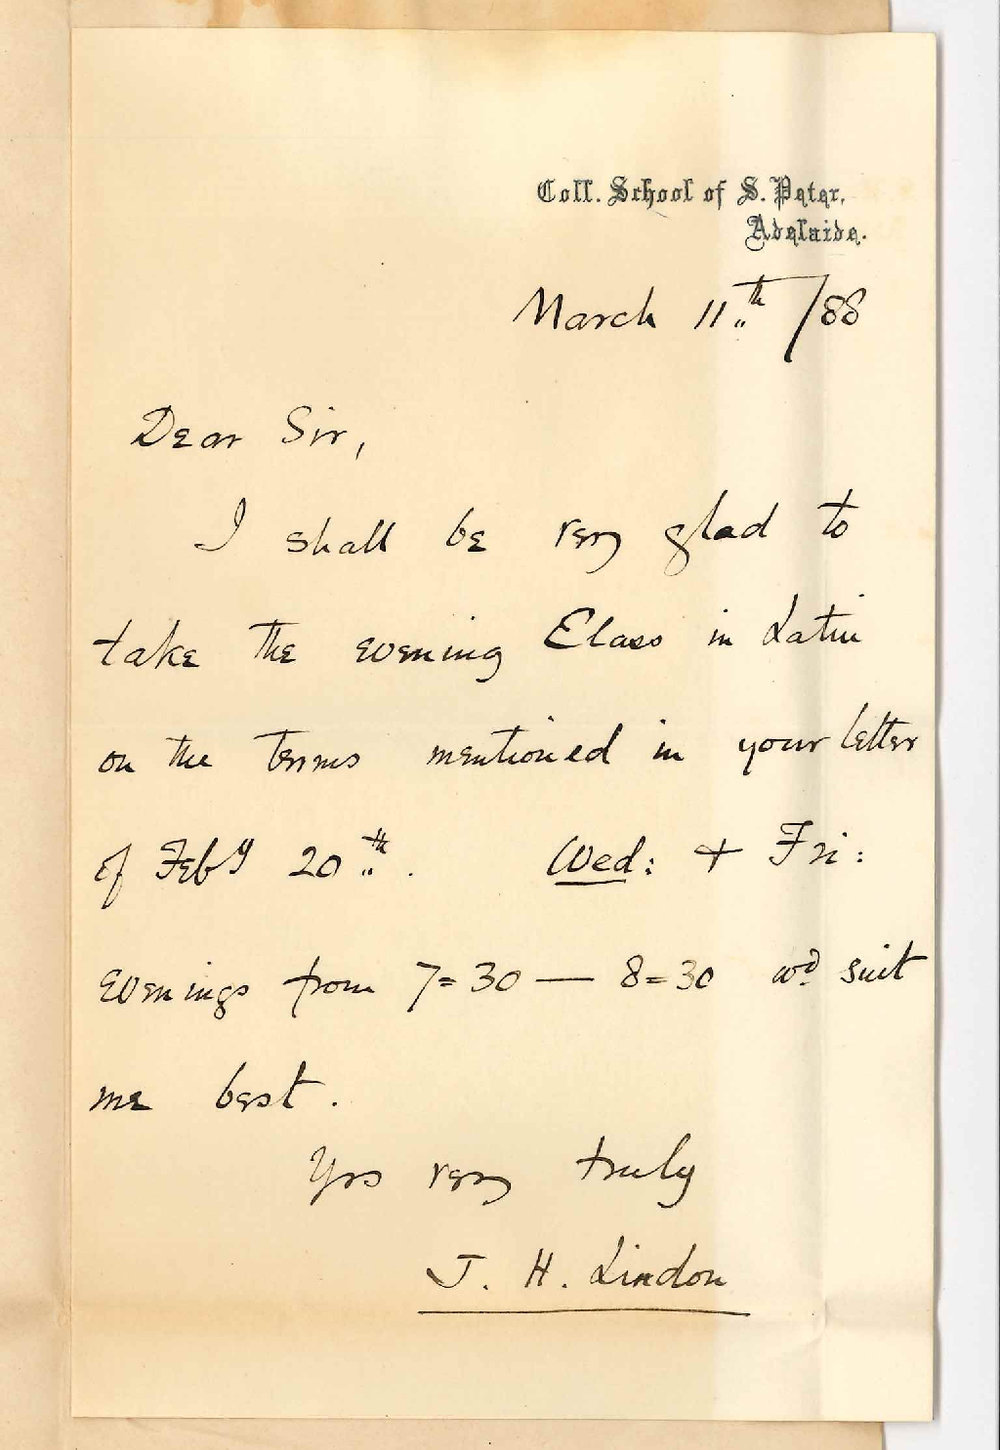 Coll. School of S. Peter,
Adelaide.
March 11th /88
Dear Sir,
I shall be very glad to
take the evening Class in Latin
on the terms mentioned in your letter
of Feby 20th. Wed: + Fri:
evenings from 7=30 — 8=30 wd. suit
me best.
Yrs very truly
J. H. Lindon